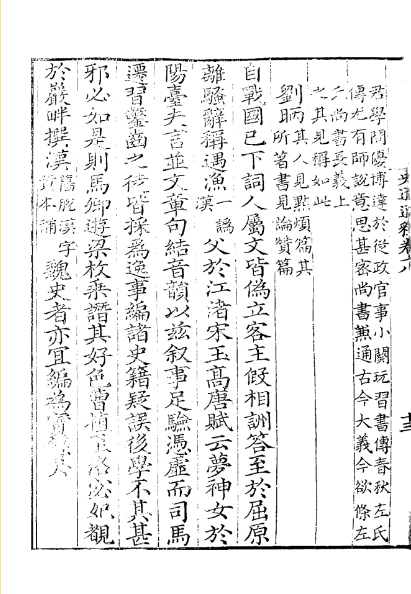 君學問優博達於從政官事小閒玩習書傳春秋左氏
傳尤有師說意思甚密尚書兼通古今大義今欲條左
氏尚書長義上
之其見稱如此
劉昞其人見點煩篇其
所著書見論贊篇
自戰國已下詞人屬文皆偽立客主假相詶答至於屈原
離騷辭稱遇漁一譌
漢父於江渚宋玉高唐賦云夢神女於
陽臺夫言並文章句結音韻以茲叙事足驗憑虛而司馬
遷習鑿齒之徒皆採為逸事編諸史籍疑誤後學不其甚
邪必如是則馬卿遊梁枚乘譖其好色曹植至洛宓妃覩
於巖畔撰漢舊脫漢字
黃本補魏史者亦宜編為實錄矣
史通通釋卷十八
十三